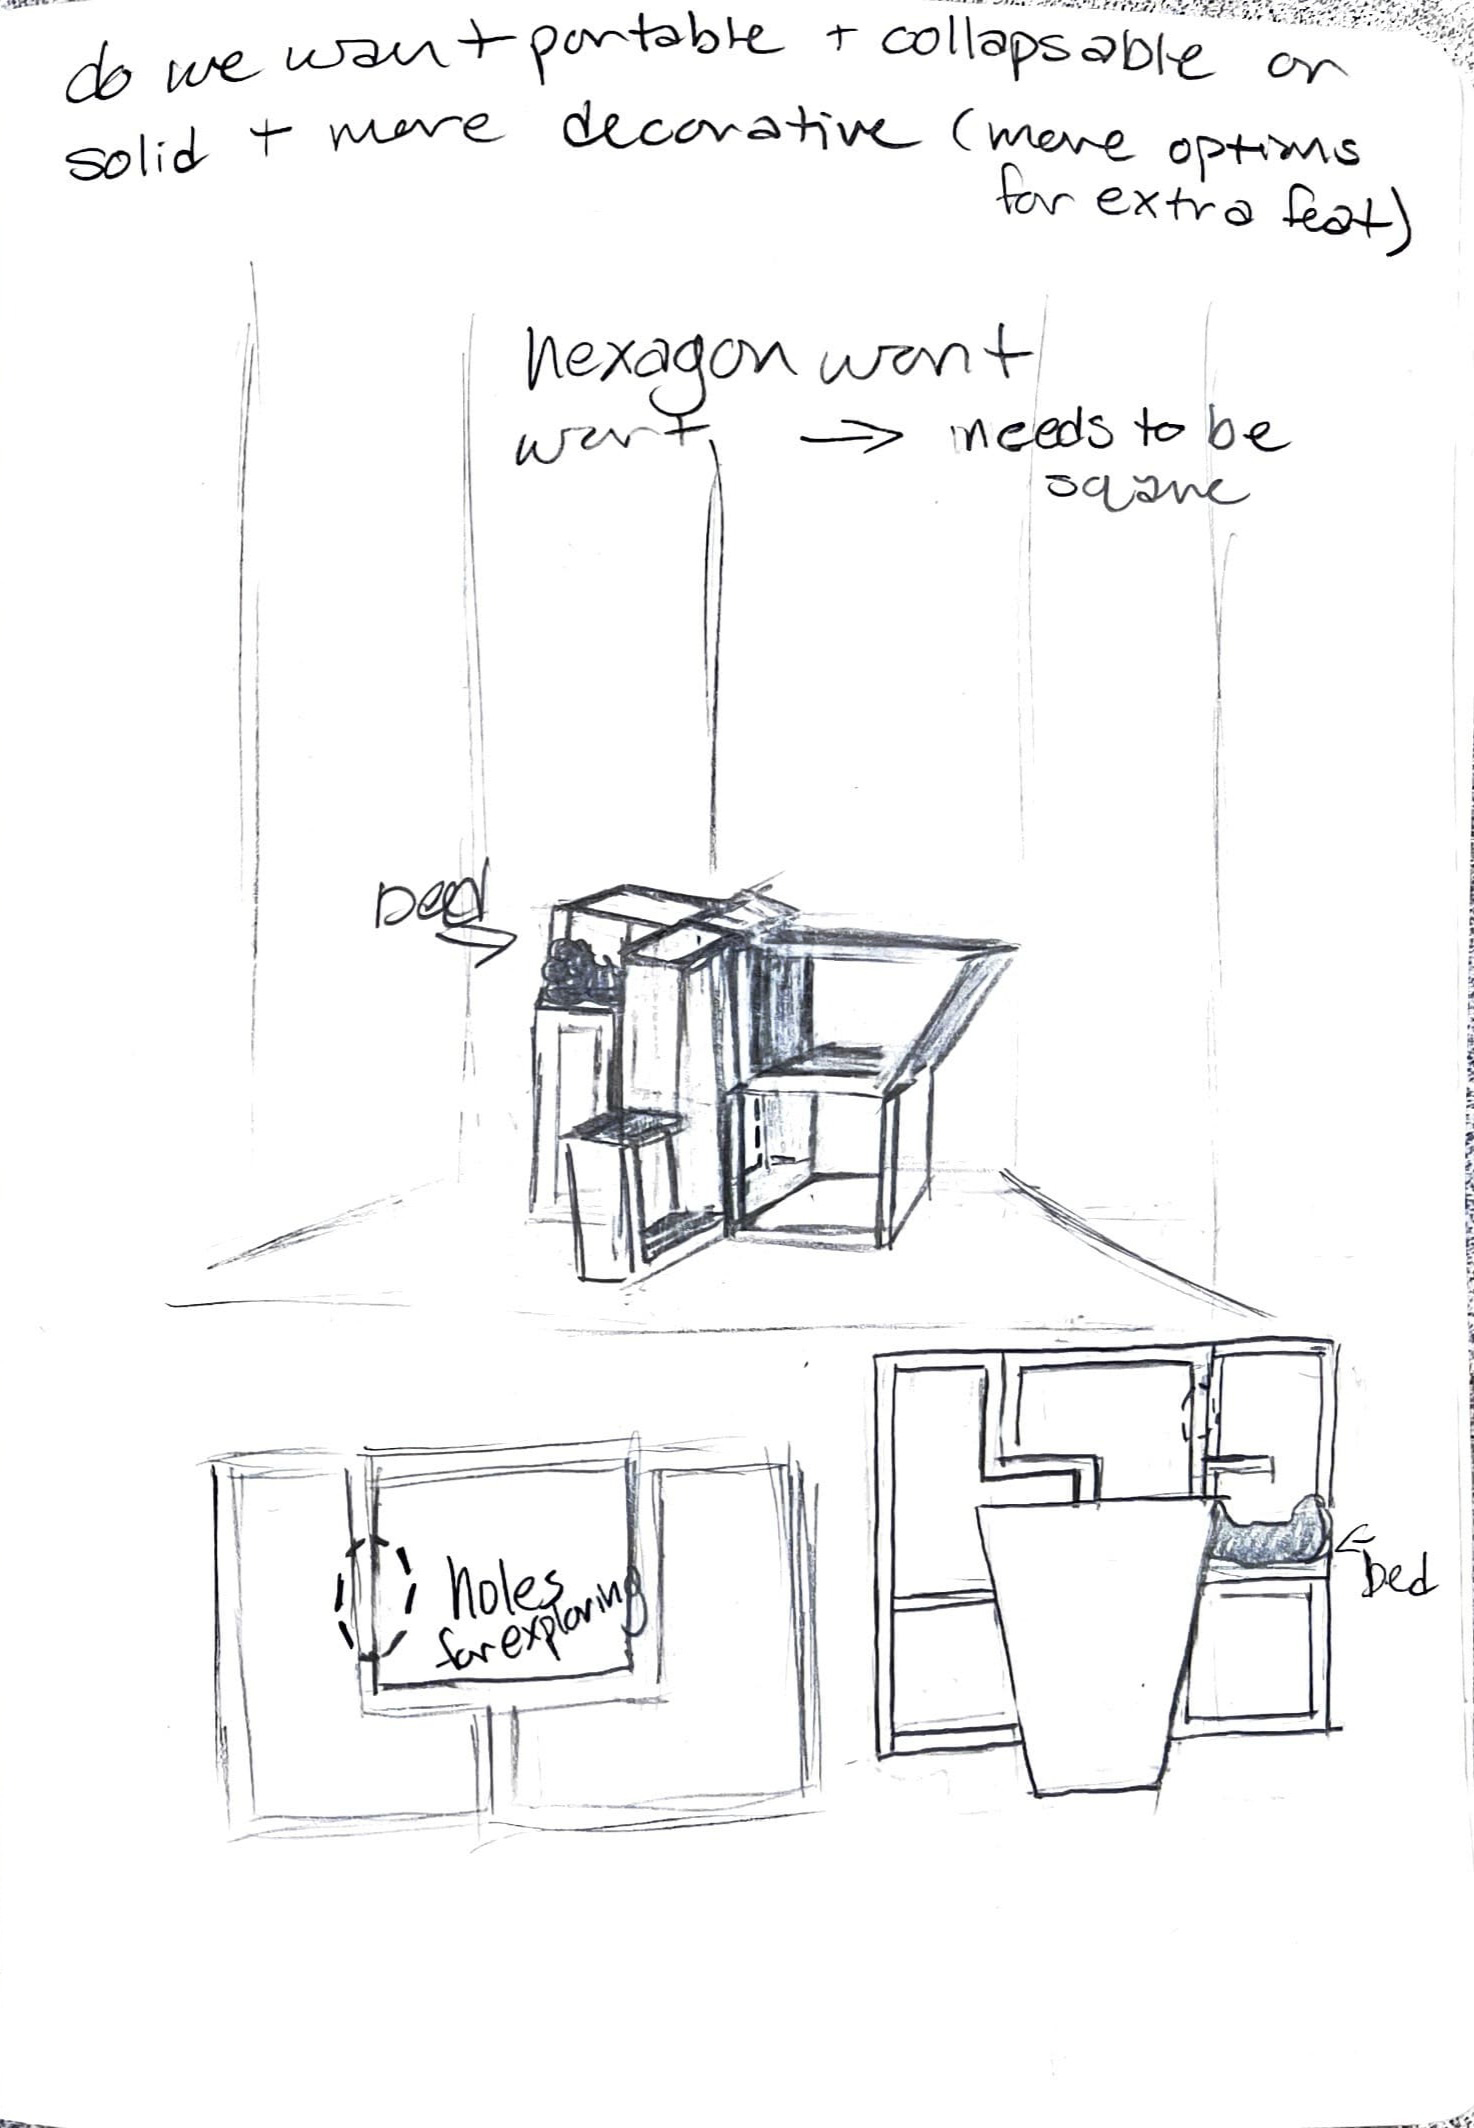 do we want portable + collapsable or
solid + more decorative (more options
for extra feat)
hexagon wont
wort → needs to be
square
Bed
holes
for exploring
bed